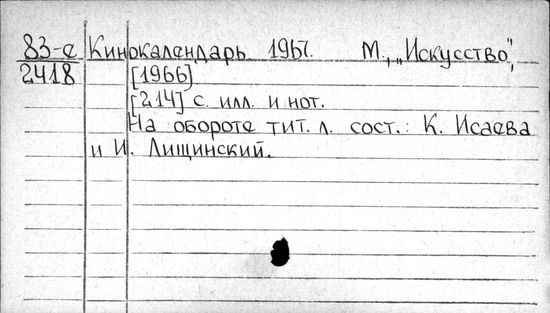 83-е Кинокалендарь. 1967. М., „Искусство",
2418 [1966]
[214] с. илл. и нот.
На обороте тит. л. сост.: К. Исаева
и И. Лищинский.